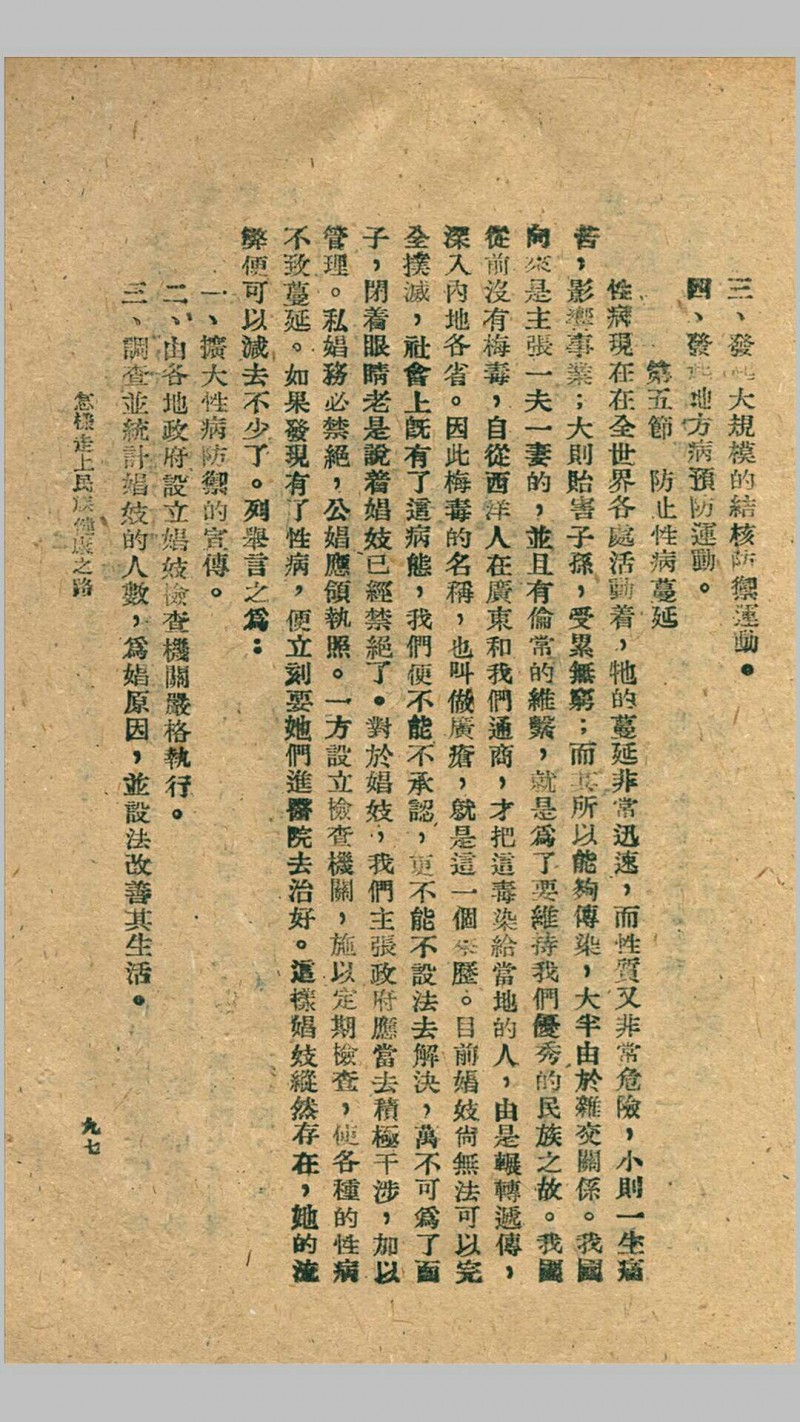 三、發起大規模的結核防禦運動。
四、發起地方病預防運動。
第五節　防止性病蔓延
性病現在在全世界各處活動着，牠的蔓延非常迅速，而性質又非常危險，小則一生痛
苦，影響事業；大則貽害子孫，受累無窮；而其所以能夠傳染，大半由於雜交關係。我國
向來是主張一夫一妻的，並且有倫常的維繫，就是爲了要維持我們優秀的民族之故。我國
從前沒有梅毒，自從西洋人在廣東和我們通商，才把這毒染給當地的人，由是輾轉遞傳，
深入內地各省。因此梅毒的名稱，也叫做廣瘡，就是這一個來歷。目前娼妓尙無法可以完
全撲滅，社會上旣有了這病態，我們便不能不承認，更不能不設法去解決，萬不可爲了面
子，閉着眼睛老是說着娼妓已經禁絕了。對於娼妓，我們主張政府應當去積極干涉，加以
管理。私娼務必禁絕，公娼應領執照。一方設立檢查機關，施以定期檢查，使各種的性病
不致蔓延。如果發現有了性病，便立刻要她們進醫院去治好。這樣娼妓縱然存在，她的流
弊便可以減去不少了。列舉言之爲：
一、擴大性病防禦的宣傳。
二、由各地政府設立娼妓檢查機關嚴格執行。
三、調查並統計娼妓的人數，爲娼原因，並設法改善其生活。
怎樣走上民族健康之路
九七